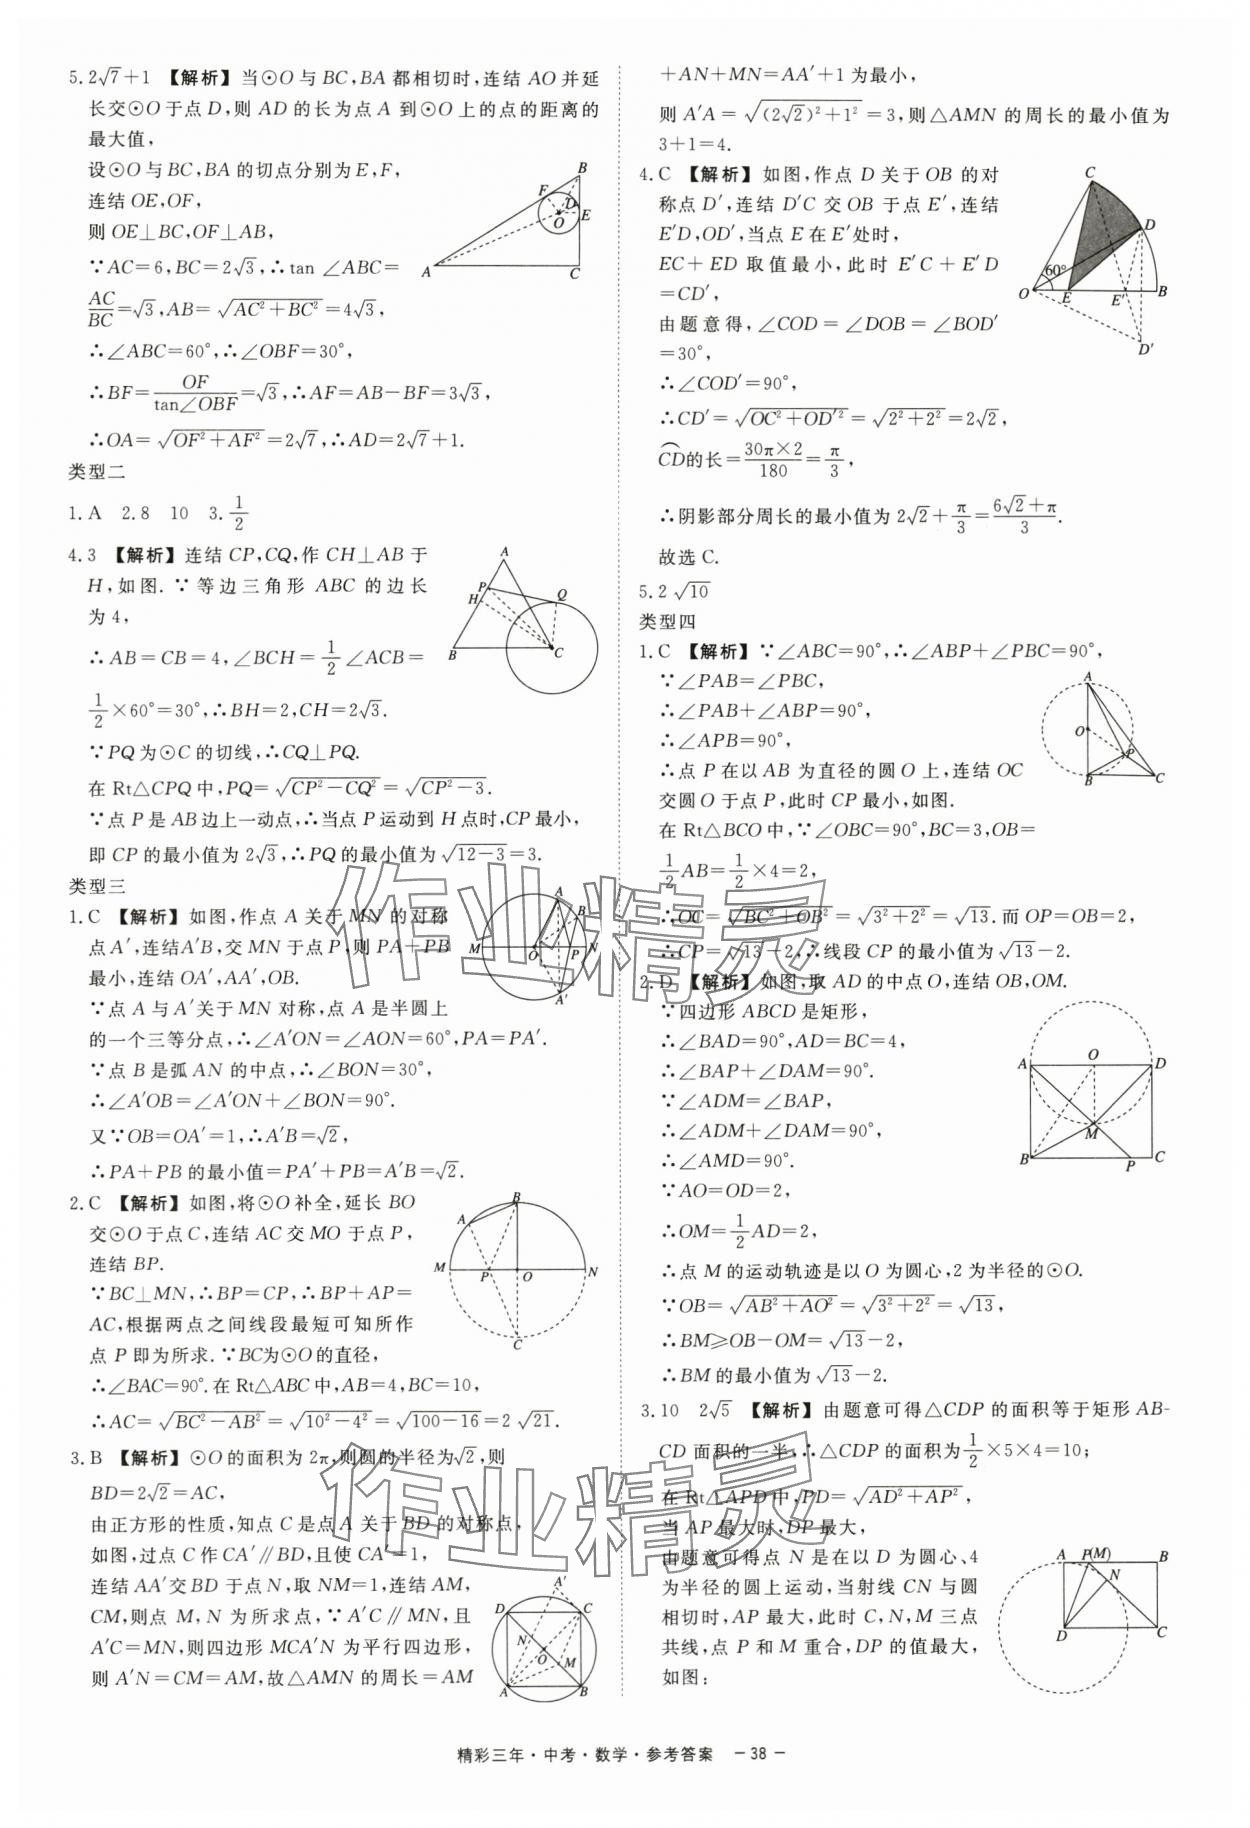 5.2√7+1 【解析】当⊙O与BC,BA都相切时,连结AO并延
长交⊙O于点D,则AD的长为点A到⊙O上的点的距离的
最大值,
设⊙O与BC,BA的切点分别为E,F,
连结OE,OF,
则OE⊥BC,OF⊥AB,
∵AC=6,BC=2√3,∴tan∠ABC=
AC/BC=√3,AB=√(AC²+BC²)=4√3,
∴∠ABC=60°,∴∠OBF=30°,
∴BF=OF/tan∠OBF=√3,∴AF=AB-BF=3√3,
∴OA=√(OF²+AF²)=2√7,∴AD=2√7+1.
B
F
D
E
O
A
C
类型二
1.A 2.8 10 3.1/2
4.3 【解析】连结CP,CQ,作CH⊥AB于
H,如图.∵等边三角形ABC的边长
为4,
∴AB=CB=4,∠BCH=1/2∠ACB=
1/2×60°=30°,∴BH=2,CH=2√3.
∵PQ为⊙C的切线,∴CQ⊥PQ.
在Rt△CPQ中,PQ=√(CP²-CQ²)=√(CP²-3).
∵点P是AB边上一动点,∴当点P运动到H点时,CP最小,
即CP的最小值为2√3,∴PQ的最小值为√(12-3)=3.
A
P
H
Q
B
C
类型三
1.C 【解析】如图,作点A关于MN的对称
点A′,连结A′B,交MN于点P,则PA+PB
最小,连结OA′,AA′,OB.
∵点A与A′关于MN对称,点A是半圆上
的一个三等分点,∴∠A′ON=∠AON=60°,PA=PA′.
∵点B是弧AN的中点,∴∠BON=30°,
∴∠A′OB=∠A′ON+∠BON=90°.
又∵OB=OA′=1,∴A′B=√2,
∴PA+PB的最小值=PA′+PB=A′B=√2.
A
B
M
O
P
N
A′
2.C 【解析】如图,将⊙O补全,延长BO
交⊙O于点C,连结AC交MO于点P,
连结BP.
∵BC⊥MN,∴BP=CP,∴BP+AP=
AC,根据两点之间线段最短可知所作
点P即为所求.∵BC为⊙O的直径,
∴∠BAC=90°.在Rt△ABC中,AB=4,BC=10,
∴AC=√(BC²-AB²)=√(10²-4²)=√(100-16)=2√21.
B
A
M
P
O
N
C
3.B 【解析】⊙O的面积为2π,则圆的半径为√2,则
BD=2√2=AC,
由正方形的性质,知点C是点A关于BD的对称点,
如图,过点C作CA′∥BD,且使CA′=1,
连结AA′交BD于点N,取NM=1,连结AM,
CM,则点M,N为所求点,∵A′C∥MN,且
A′C=MN,则四边形MCA′N为平行四边形,
则A′N=CM=AM,故△AMN的周长=AM
A′
D
C
N
O
M
A
B
+AN+MN=AA′+1为最小,
则A′A=√((2√2)²+1²)=3,则△AMN的周长的最小值为
3+1=4.
4.C 【解析】如图,作点D关于OB的对
称点D′,连结D′C交OB于点E′,连结
E′D,OD′,当点E在E′处时,
EC+ED取值最小,此时E′C+E′D
=CD′,
由题意得,∠COD=∠DOB=∠BOD′
=30°,
∴∠COD′=90°,
∴CD′=√(OC²+OD′²)=√(2²+2²)=2√2,
⌒CD的长=30π×2/180=π/3,
∴阴影部分周长的最小值为2√2+π/3=(6√2+π)/3.
故选C.
C
D
60°
O
E
E′
B
D′
5.2√10
类型四
1.C 【解析】∵∠ABC=90°,∴∠ABP+∠PBC=90°,
∵∠PAB=∠PBC,
∴∠PAB+∠ABP=90°,
∴∠APB=90°,
∴点P在以AB为直径的圆O上,连结OC
交圆O于点P,此时CP最小,如图.
在Rt△BCO中,∵∠OBC=90°,BC=3,OB=
1/2AB=1/2×4=2,
∴OC=√(BC²+OB²)=√(3²+2²)=√13.而OP=OB=2,
∴CP=√13-2.∴线段CP的最小值为√13-2.
A
O
P
B
C
2.D 【解析】如图,取AD的中点O,连结OB,OM.
∵四边形ABCD是矩形,
∴∠BAD=90°,AD=BC=4,
∴∠BAP+∠DAM=90°.
∵∠ADM=∠BAP,
∴∠ADM+∠DAM=90°,
∴∠AMD=90°.
∵AO=OD=2,
∴OM=1/2AD=2,
∴点M的运动轨迹是以O为圆心,2为半径的⊙O.
∵OB=√(AB²+AO²)=√(3²+2²)=√13,
∴BM≥OB-OM=√13-2,
∴BM的最小值为√13-2.
A
O
D
M
B
P
C
3.10 2√5 【解析】由题意可得△CDP的面积等于矩形AB-
CD面积的一半,∴△CDP的面积为1/2×5×4=10;
在Rt△APD中,PD=√(AD²+AP²),
当AP最大时,DP最大,
由题意可得点N是在以D为圆心、4
为半径的圆上运动,当射线CN与圆
相切时,AP最大,此时C,N,M三点
共线,点P和M重合,DP的值最大,
如图:
A
P(M)
B
N
D
C
作业精灵
作业精灵
精彩三年·中考·数学·参考答案 －38－